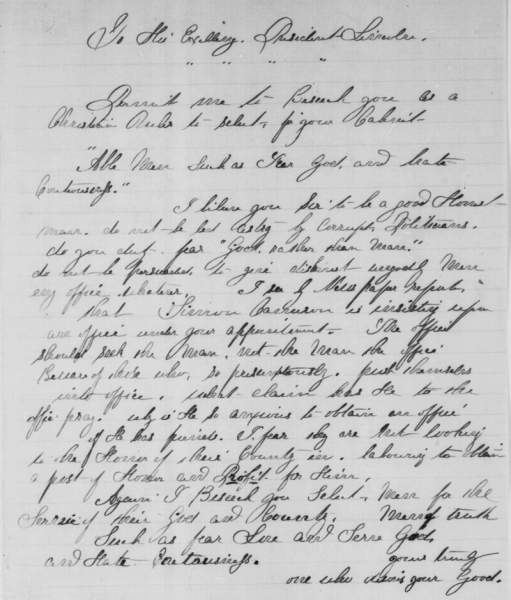 To His Excellency. President Lincoln.
" " " "
Permit me to Beseech you as a
Christian Ruler to select, for your Cabinet
"Able Men such as Fear God, and hate
Covetousness."
I believe you Sir to be a good Honest
man. do not be led astray by corrupt Politicians.
do you duty. fear "God, rather than Man."
do not be persuaded to give dishonest ungodly Men
any office whatever. I see by News paper reports,
that Simon Cameron is insisting upon
an office under your appointment. The office
should seek the Man, not the Man the office
Beware of those who, so presumptously. push themselves
into office. what claim has He to the
office pray. why is He so anxious to obtain an office
if He has friends. I fear they are not looking
to the Honor of their County in. labouring to obtain
a post of Honor and Profit for Him,
Again I Beseech you Select, Men for the
Service of their God and Country. Men of truth
Such as fear Love and Serve God,
and Hate Covetousness.
yours truly
one who desires your Good.